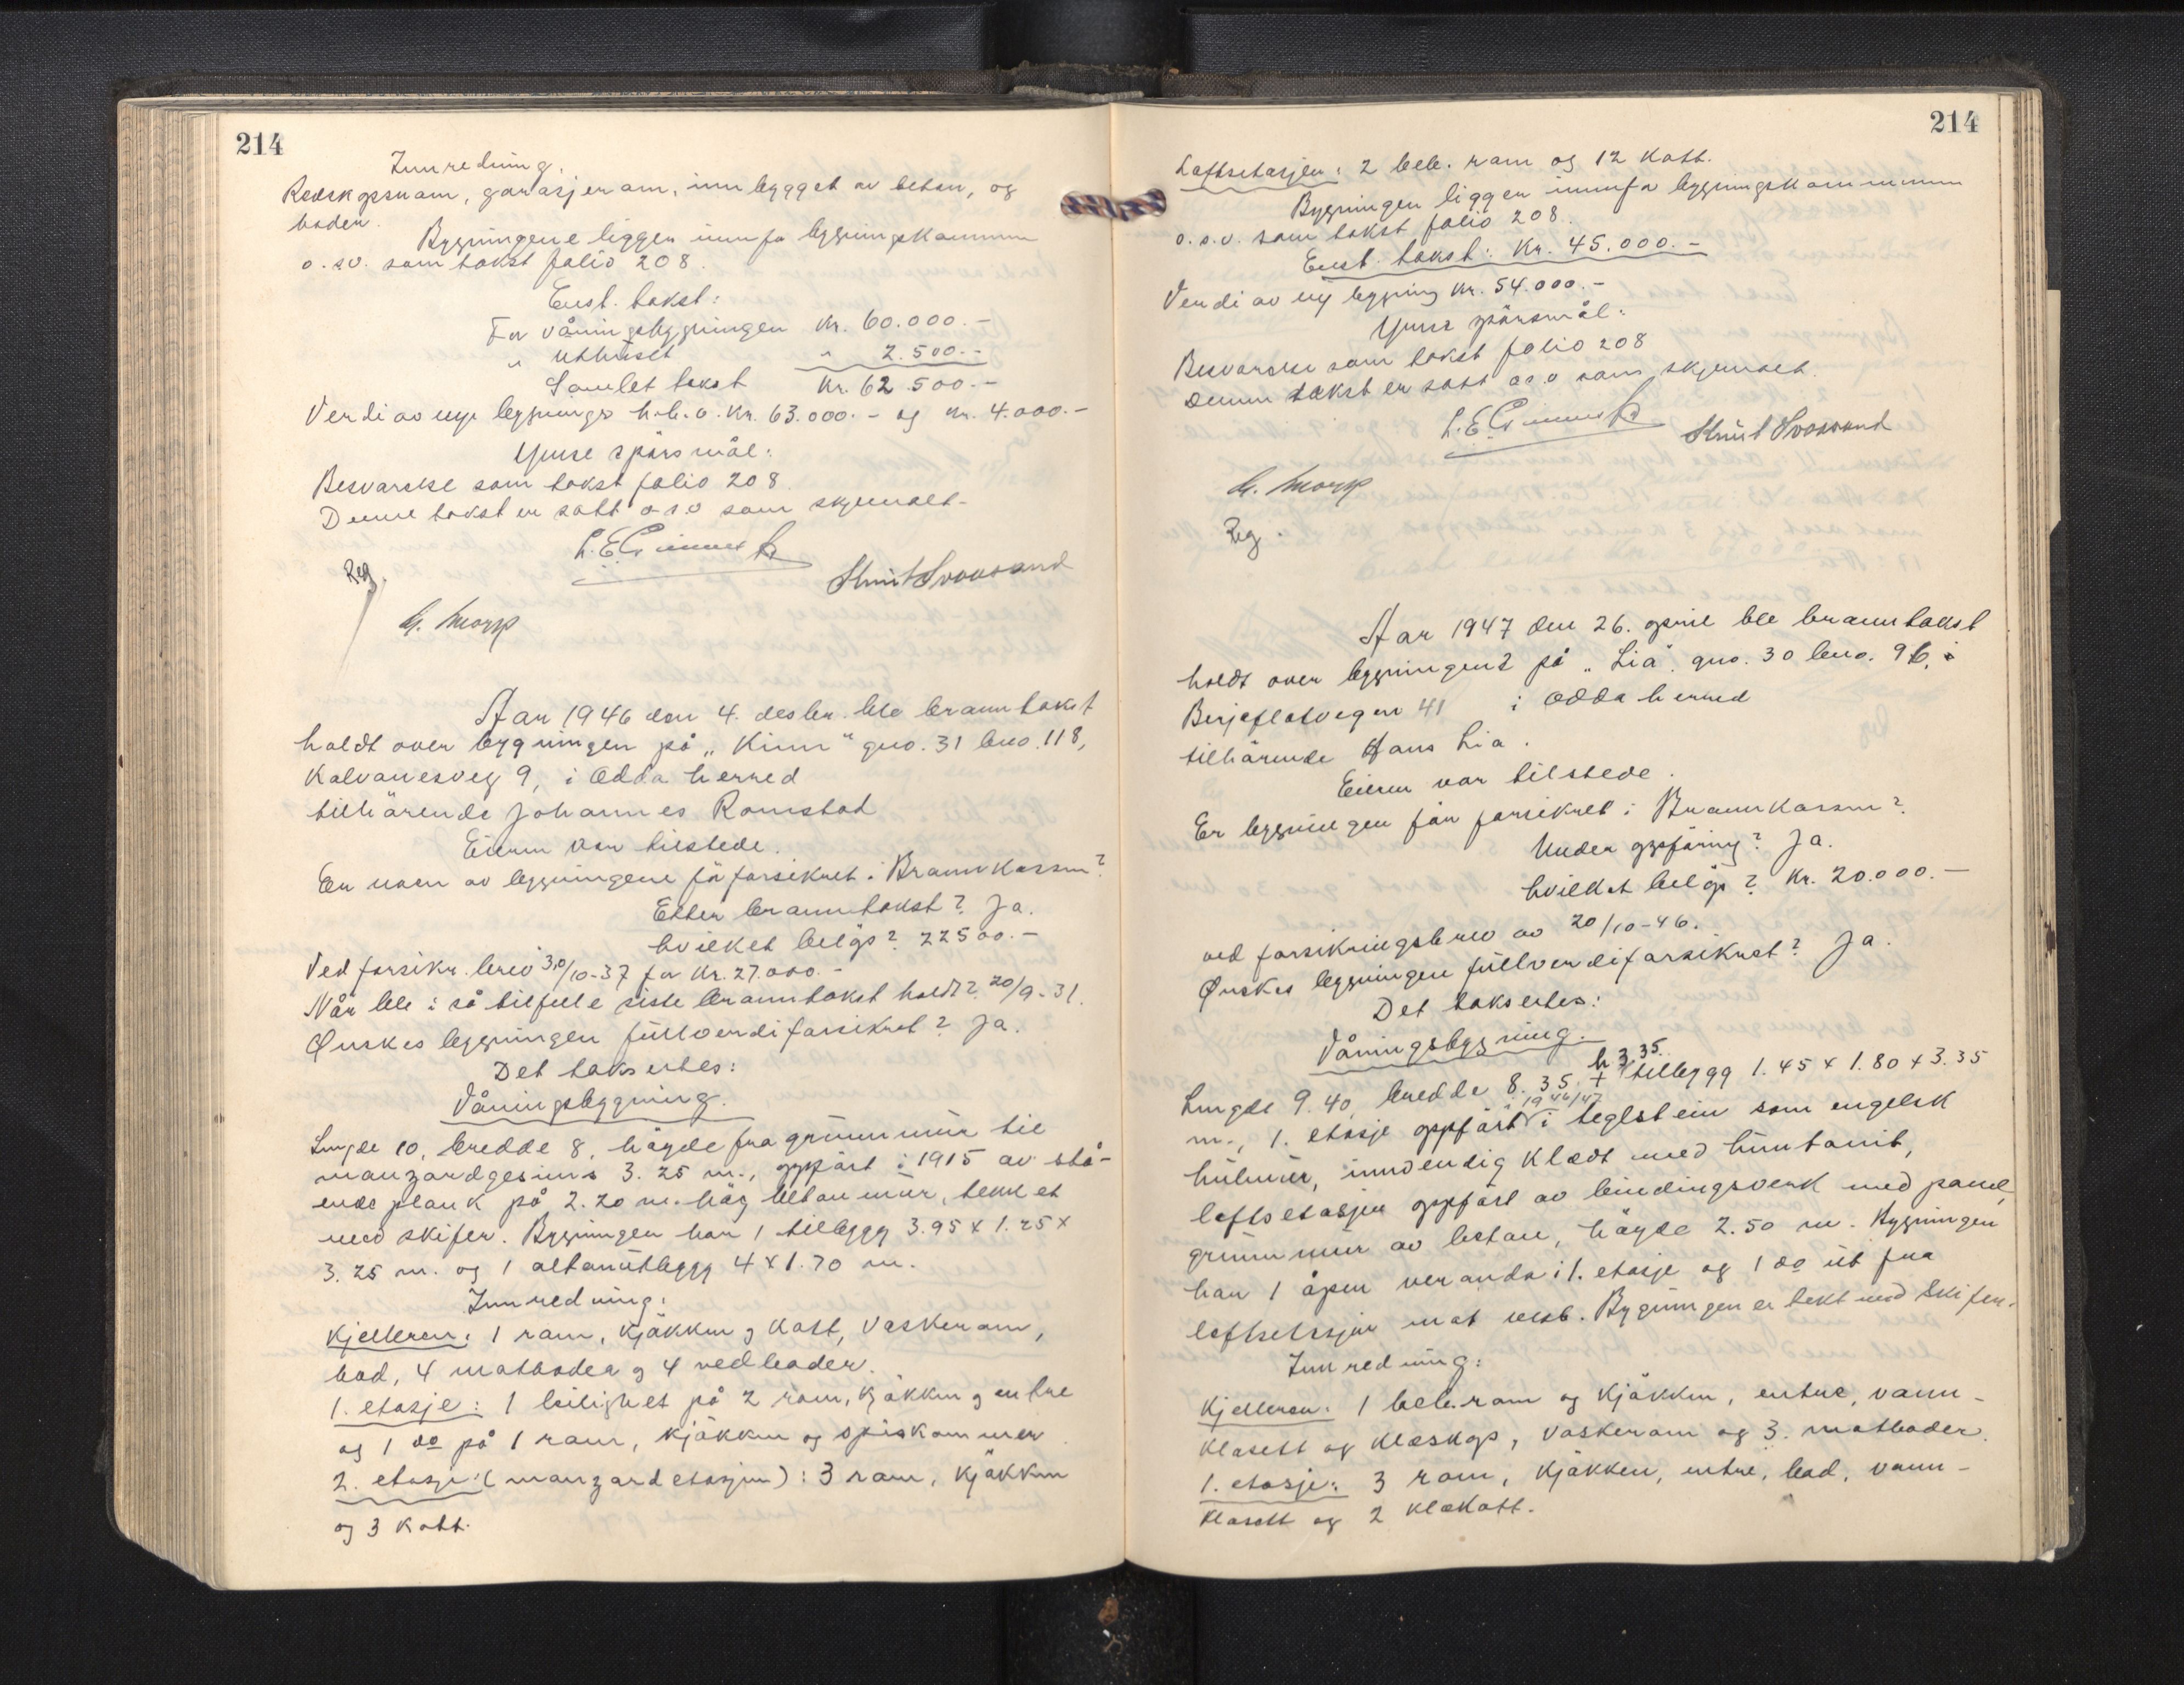 214
Innredning.
Redskapsrom, garasjerom, innbygget av beton, og
boder.
Bygningene ligger innfor bygningskommunen
o.s.v. som takst folio 208.
Enst. takst:
For våningsbygningen kr. 60.000.-
" uthuset " 2.500.-
Samlet takst Kr. 62.500.-
Verdi av nye bygninger h.h.v. Kr. 63.000.- og kr. 4.000.-
Ymse spörsmål:
Besvarelse som takst folio 208.
Denne takst er satt o.s.v som skjønnet.
Reg.
Knut Svarvand
Aar 1946 den 4. desbr. ble branntakst
holdt over bygningen på „Kinn" gno. 31 bno. 118,
Kalvanesveg 9, i Odda herred
tilhörende Johannes Romstad
Eieren var tilstede.
Er noen av bygningene för forsikret i Brannkassen?
Etter branntakst? Ja.
hvilket belöp? 22500.-
Ved forsikr. brev 30/10-37 for Kr. 27.000.-
Når ble i så tilfelle siste branntakst holdt? 20/9-31.
Ønskes bygningen fullverdiforsikret? Ja.
Det taksertes:
Våningsbygning.
Lengde 10, bredde 8, höyde fra grunnmur til
manzardgesims 3.25 m., oppfört i 1915 av stå-
ende plank på 2.20 m. höy betonmur, tekket
med skifer. Bygningen har 1 tilbygg 3.95 x 1.25 x
3.25 m. og 1 altanutbygg 4 x 1.70 m.
Innredning:
Kjelleren: 1 rom, kjökken og kott, vaskerom,
bod, 4 matboder og 4 vedboder.
1. etasje: 1 leilighet på 2 rom, kjökken og entre
og 1 do på 1 rom, kjökken og spiskammer
2. etasje: (manzardetasjen): 3 rom, kjökken
og 3 kott.
214
Loftsetasjen: 2 beb. rom og 12 kott.
Bygningen ligger innfor bygningskommunen
o.s.v. som takst folio 208.
Enst. takst: Kr. 45.000.-
Verdi av ny bygning kr. 54.000.-
Ymse spörsmål:
Besvarelse som takst folio 208
Denne takst er satt o.s.v som skjønnet.
Knut Svarvand
Reg.
Aar 1947 den 26. april ble branntakst
holdt over bygningene på „Lia". gno. 30 bno. 96, i
Berjeflotvegen 41 i Odda herred
tilhörende Hans Lia.
Eieren var tilstede.
Er bygningen för forsikret i Brannkassen?
Under oppföring? Ja.
hvilket belöp? Kr. 20.000.-
ved forsikringsbrev av 20/10-46.
Ønskes bygningen fullverdiforsikret? Ja.
Det taksertes:
Våningsbygning.
Lengde 9.40, bredde 8.35. h. 3.35. + tilbygg 1.45 x 1.80 x 3.35
m., 1. etasje oppfört 1946/47 i teglstein som engelsk
hulmur, innvendig kledt med huntonit,
loftsetasjen oppfört av bindingsverk med panel,
grunnmur av beton, höyde 2.50 m. Bygningen
har 1 åpen veranda i 1. etasje og 1 do ut fra
loftsetasjen mot vest. Bygningen er tekt med skifer.
Innredning:
Kjelleren: 1 beb. rom og kjökken, entre, vann-
klosett og kleskap, vaskerom og 3. matboder.
1. etasje: 3 rom, kjökken, entre, bad, vann-
klosett og 2 klekott.